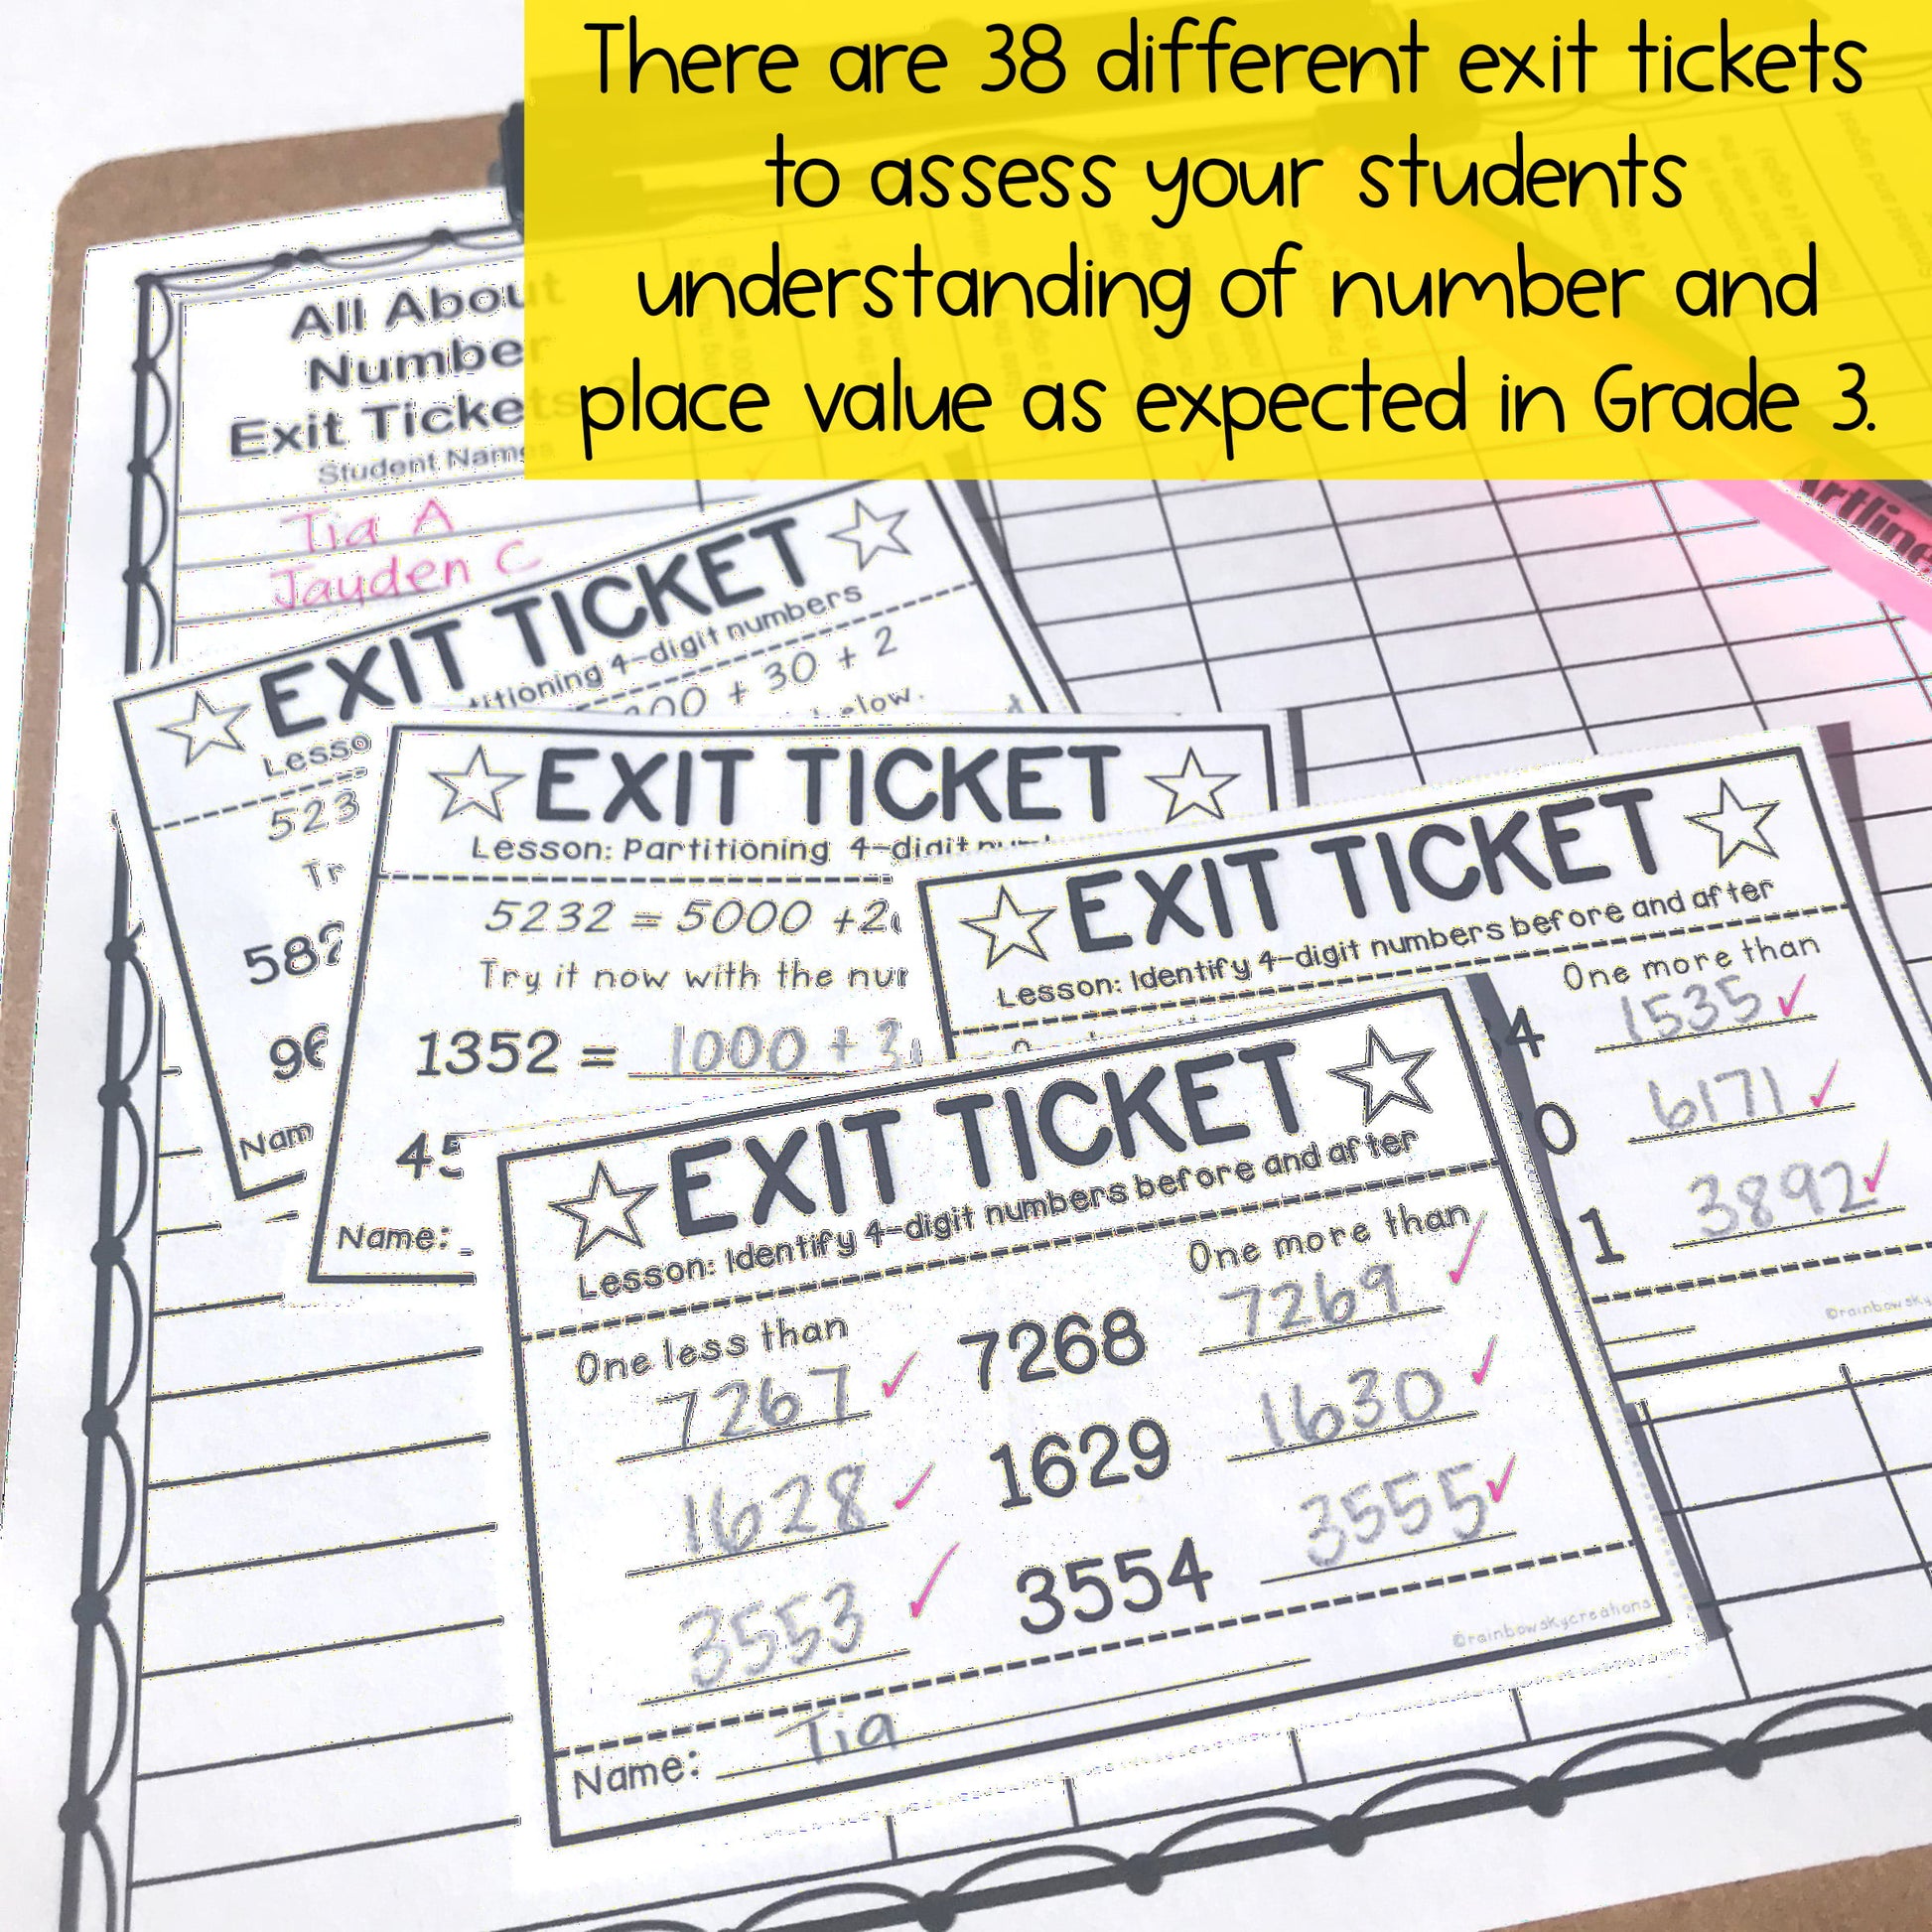 There are 38 different exit tickets
to assess your students
understanding of number and
place value as expected in Grade 3.
All About
Number
Exit Tickets
Student Names
Tia A
Jayden C
EXIT TICKET
4-digit numbers
+ 30 + 2
523
Tr
96
Nam
EXIT TICKET
Lesson: Partitioning 4-digit
5232 = 5000 +2
Try it now with the
1352 = 1000 + 3
45
Name:
EXIT TICKET
Lesson: Identify 4-digit numbers before and after
One more than
4 1535
0 6171
1 3892
EXIT TICKET
Lesson: Identify 4-digit numbers before and after
One less than One more than
7267 7268 7269
1628 1629 1630
3553 3554 3555
©rainbowskycreations
Name: Tia
Artline